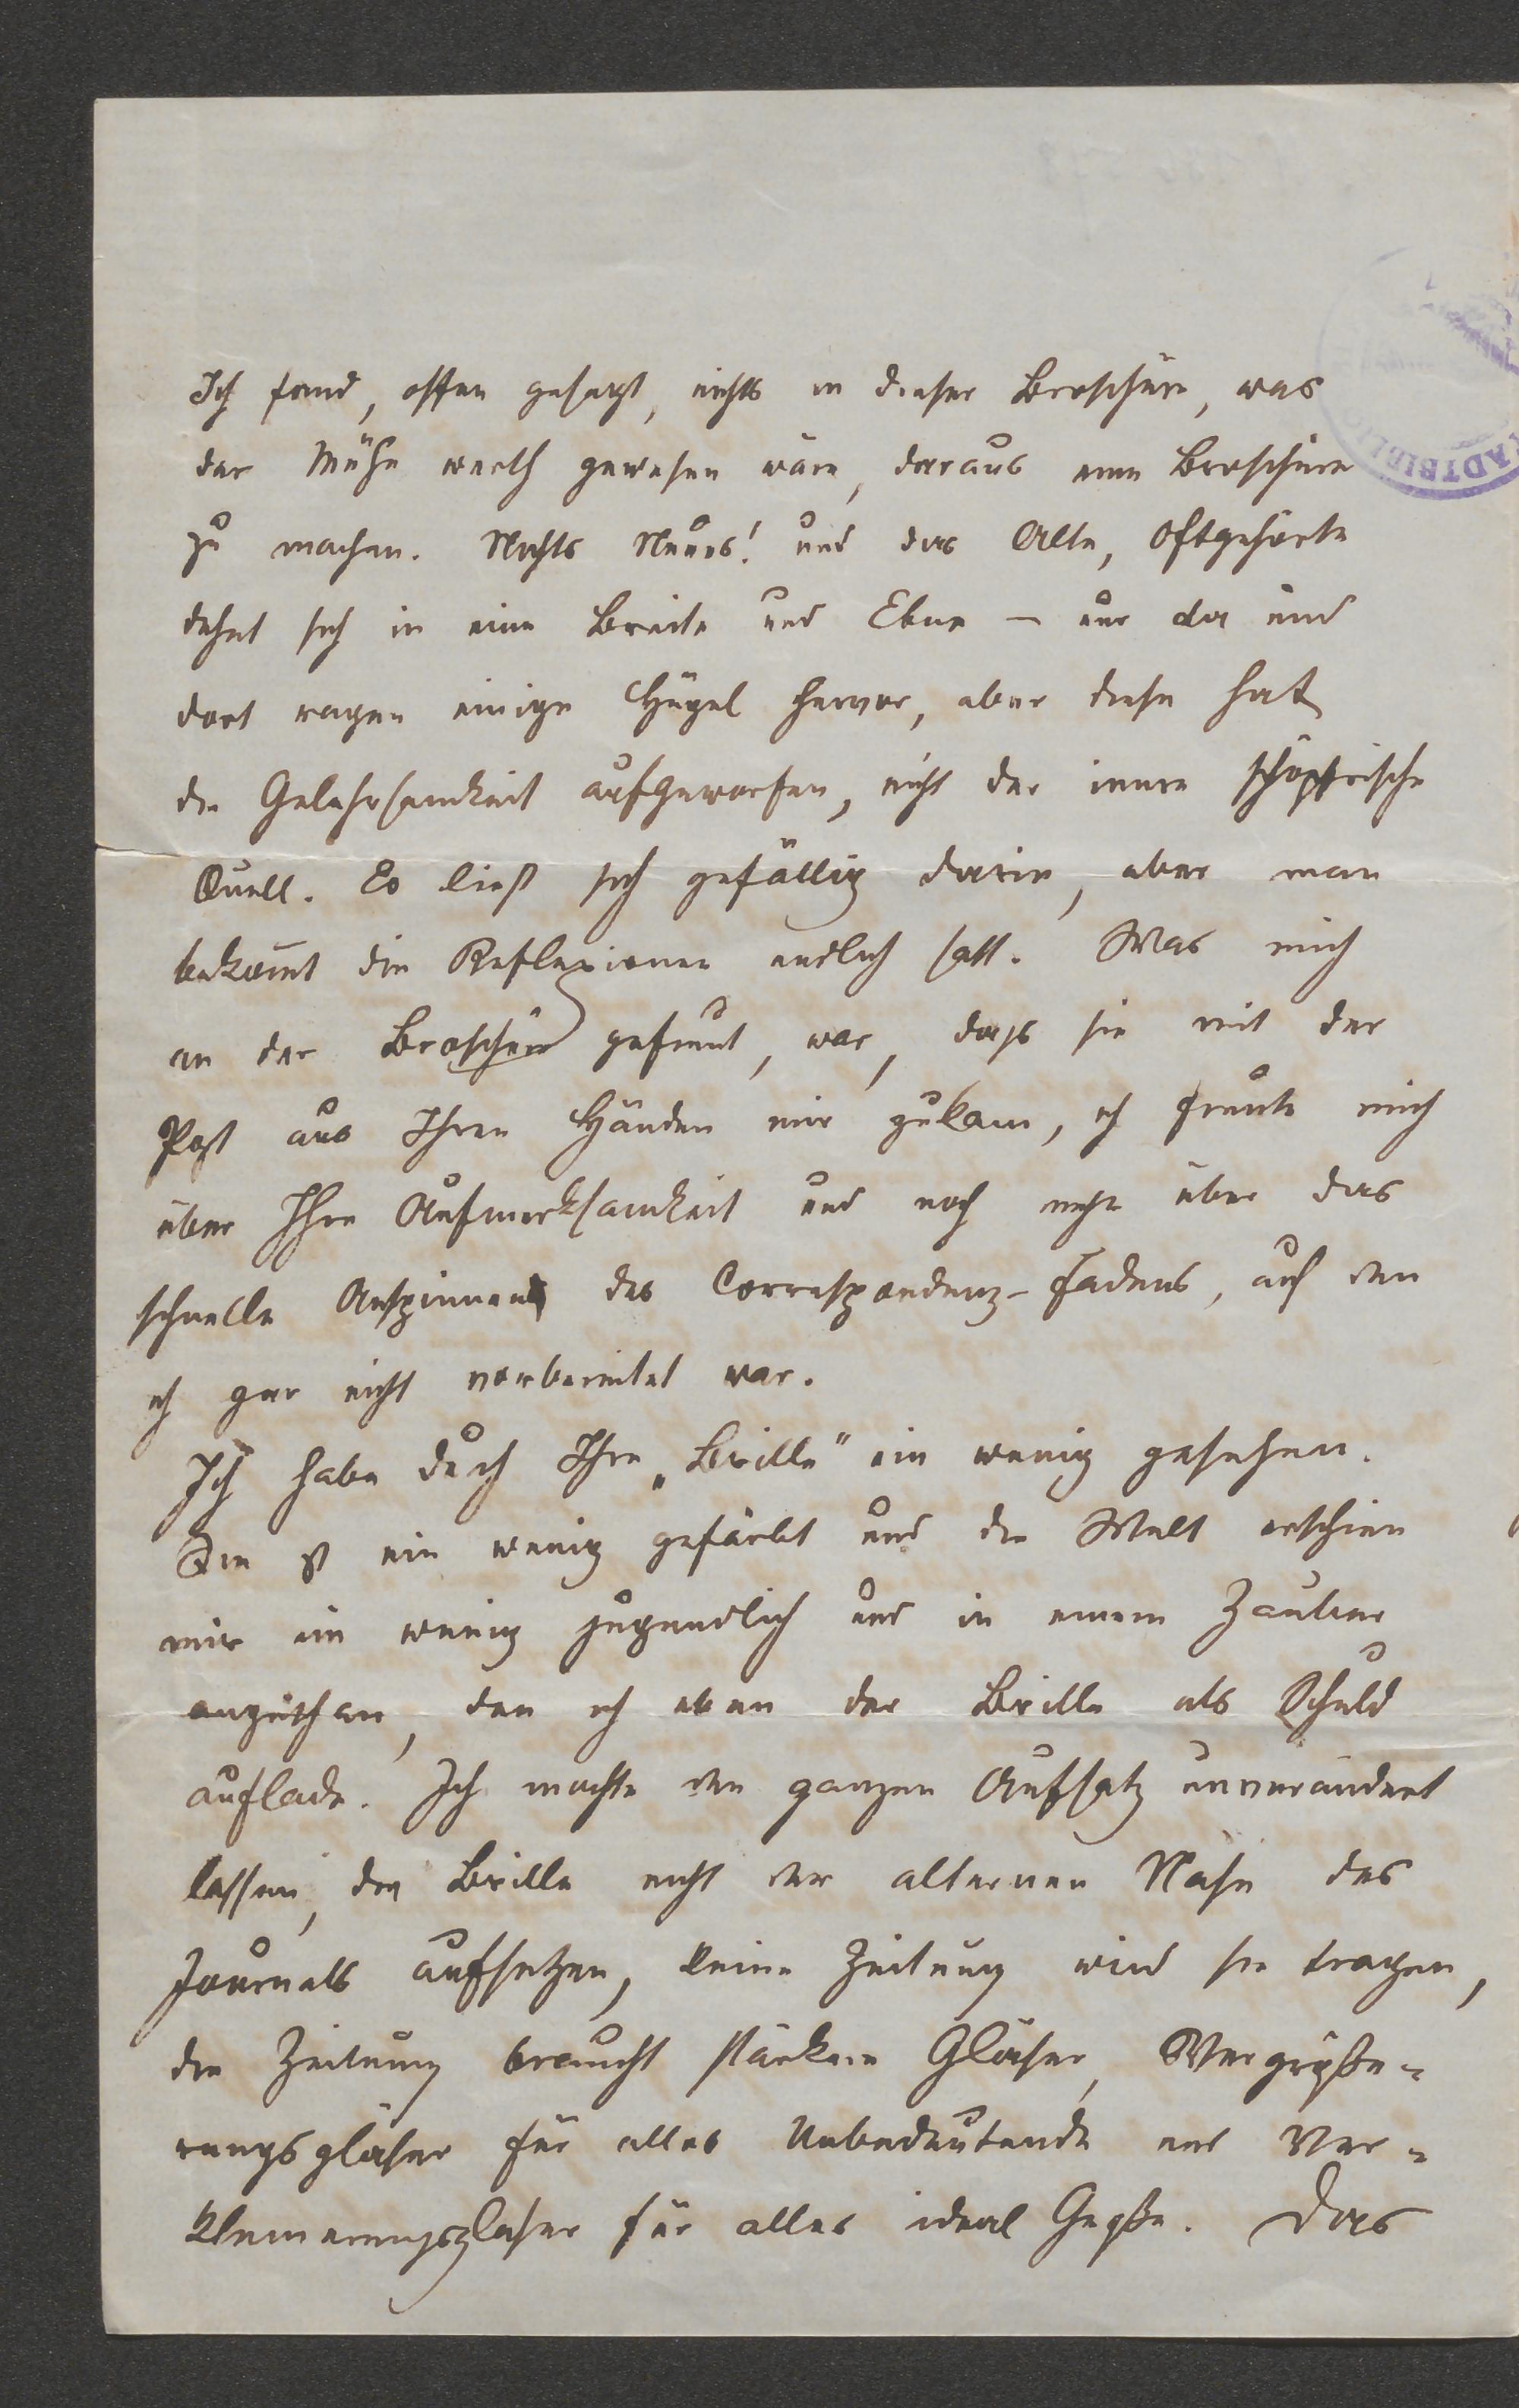 Ich fand, offen gesagt, nichts in dieser Broschüre, was
der Mühe werth gewesen wäre, daraus eine Broschüre
zu machen. Nichts Neues! und das Alte, Oftgehörte
dehnt sich in eine Breite und Ebne – nur da und
dort ragen einige Hügel hervor, aber diese hat
die Gelehrsamkeit aufgeworfen, nicht der innere schöpfrische
Quell. Es liest sich gefällig darin, aber man
bekommt die Reflexionen endlich satt. Was mich
an der Broschüre gefreut, war, daß sie mit der
Post aus Ihren Händen mir zukam, ich freute mich
über Ihre Aufmerksamkeit und noch mehr über das
schnelle Anspinnen des Correspondenz-Fadens, auf den
ich gar nicht vorbereitet war.
Ich habe durch Ihre „Brille" ein wenig gesehen.
Sie ist ein wenig gefärbt und die Welt erschien
mir ein wenig jugendlich und in einem Zauber
angethan, den ich eben der Brille als Schuld
auflade. Ich möchte den ganzen Aufsatz unverändert
lassen, die Brille nicht der alternen Nase des
Journals aufsetzen, keine Zeitung wird sie tragen,
die Zeitung braucht stärkere Gläser, Vergröße-
rungsgläser für alles Unbedeutende und Ver-
kleinerungsgläser für alles ideal Große. Das
STADTBIBLIO